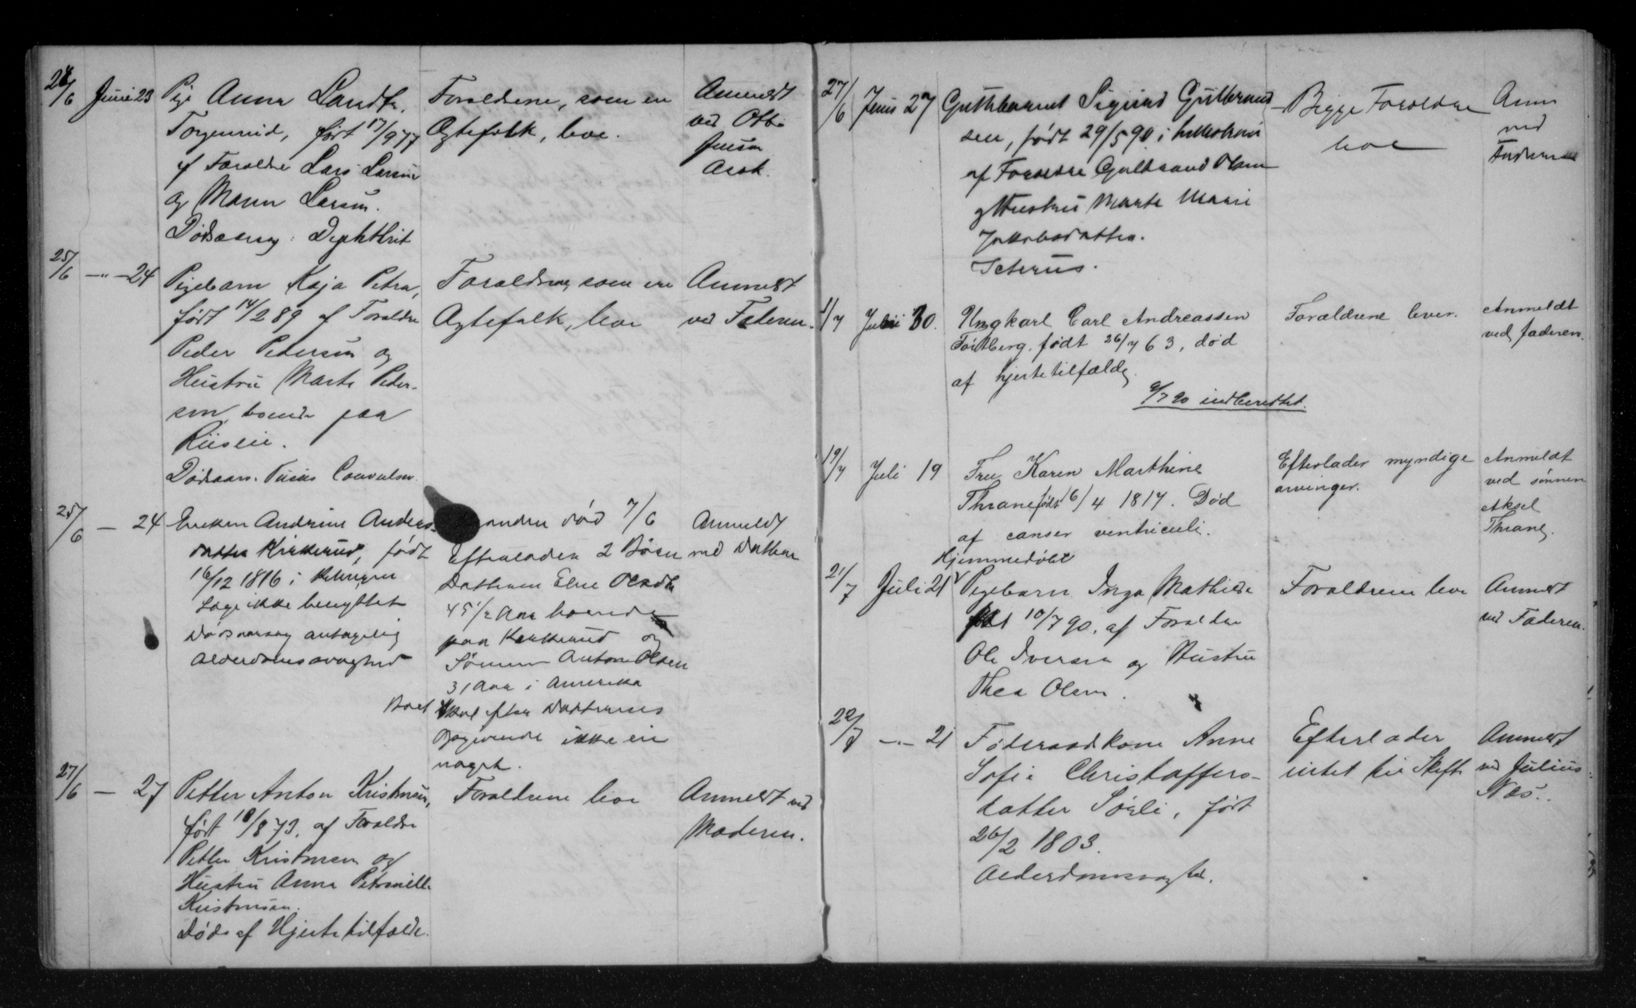 24/6 Juni 23 Pige Anna Landfa.
Torgenrud, født 17/9 77
af Foraldre Lars Larsen
og Maren Larsen.
Dødsaarsag: Diphthrit
Foraldrene, som er
Ægtefolk, leve.
Anmeldt
ved Otto
Jensen
25/6 — " — 24 Pigebarn Kaja Petra,
født 14/2 89 af Foraldre
Peder Pedersen og
Hustru Marte Peder-
sen, boende paa
Riiseie.
Dødsaars. Tusis Convulsiv
Foraldrene, som ere
Ægtefolk, leve
Anmeldt
ved Faderen.
25/6 — 24 Enken Andrine Anders
datter Kirkerud, født
16/12 1816 i
Læge ikke benyttet
Dødsaarsag antagelig
Alderdomssvaghed
manden død 7/6
Efterlader 2 Børn
Datteren Eline Olsdtr
45 1/2 Aar boende
paa Kirkerud og
Sønnen Anton Olsen
31 Aar i Amerika
Boet skal efter Datterens
Opgivende ikke eie
noget.
Anmeldt
ved Datteren
27/6 — 27 Petter Anton Kristensen,
født 18/8 73, af Foraldre
Petter Kristensen og
Hustru Anna Petronille
Kristensen.
Døde af Hjertetilfælde.
Foraldrene leve
Anmeldt ved
Moderen.
27/6 Juni 27 Guttebarnet Sigurd Gulbrand
sen, født 29/5 90 i
af Foraldre Gulbrand Olsen
og Hustru Marte Marie
Jakobsdatter.
Icterus.
Begge Foraldre
leve
Anm
ved
Faderen
1/7 Juni 30. Ungkarl Carl Andreassen
født 26/7 63, død
af hjertetilfælde.
9/7 90 indberettet.
Forældrene lever.
Anmeldt
ved faderen.
19/7 Juli 19 Fru Karen Marthine
Thrane født 16/4 1817. Død
af cancer ventriculi.
Efterlader myndige
arvinger.
Anmeldt
ved sønnen
Aksel
Thrane.
Hjemmedøbt
21/7 Juli 21 Pigebarn Inga Mathilde
født 10/7 90, af Foraldre
Ole Iversen og Hustru
Thea Olsen.
Foraldrene leve
Anmeldt
ved Faderen.
22/7 — " — 21 Føderaadskone Anne
Sofie Christoffers-
datter Sørli, født
26/2 1803.
Alderdomssvaghed.
Efterlader
intet til Skifte
Anmeldt
ved Julius
Næs.